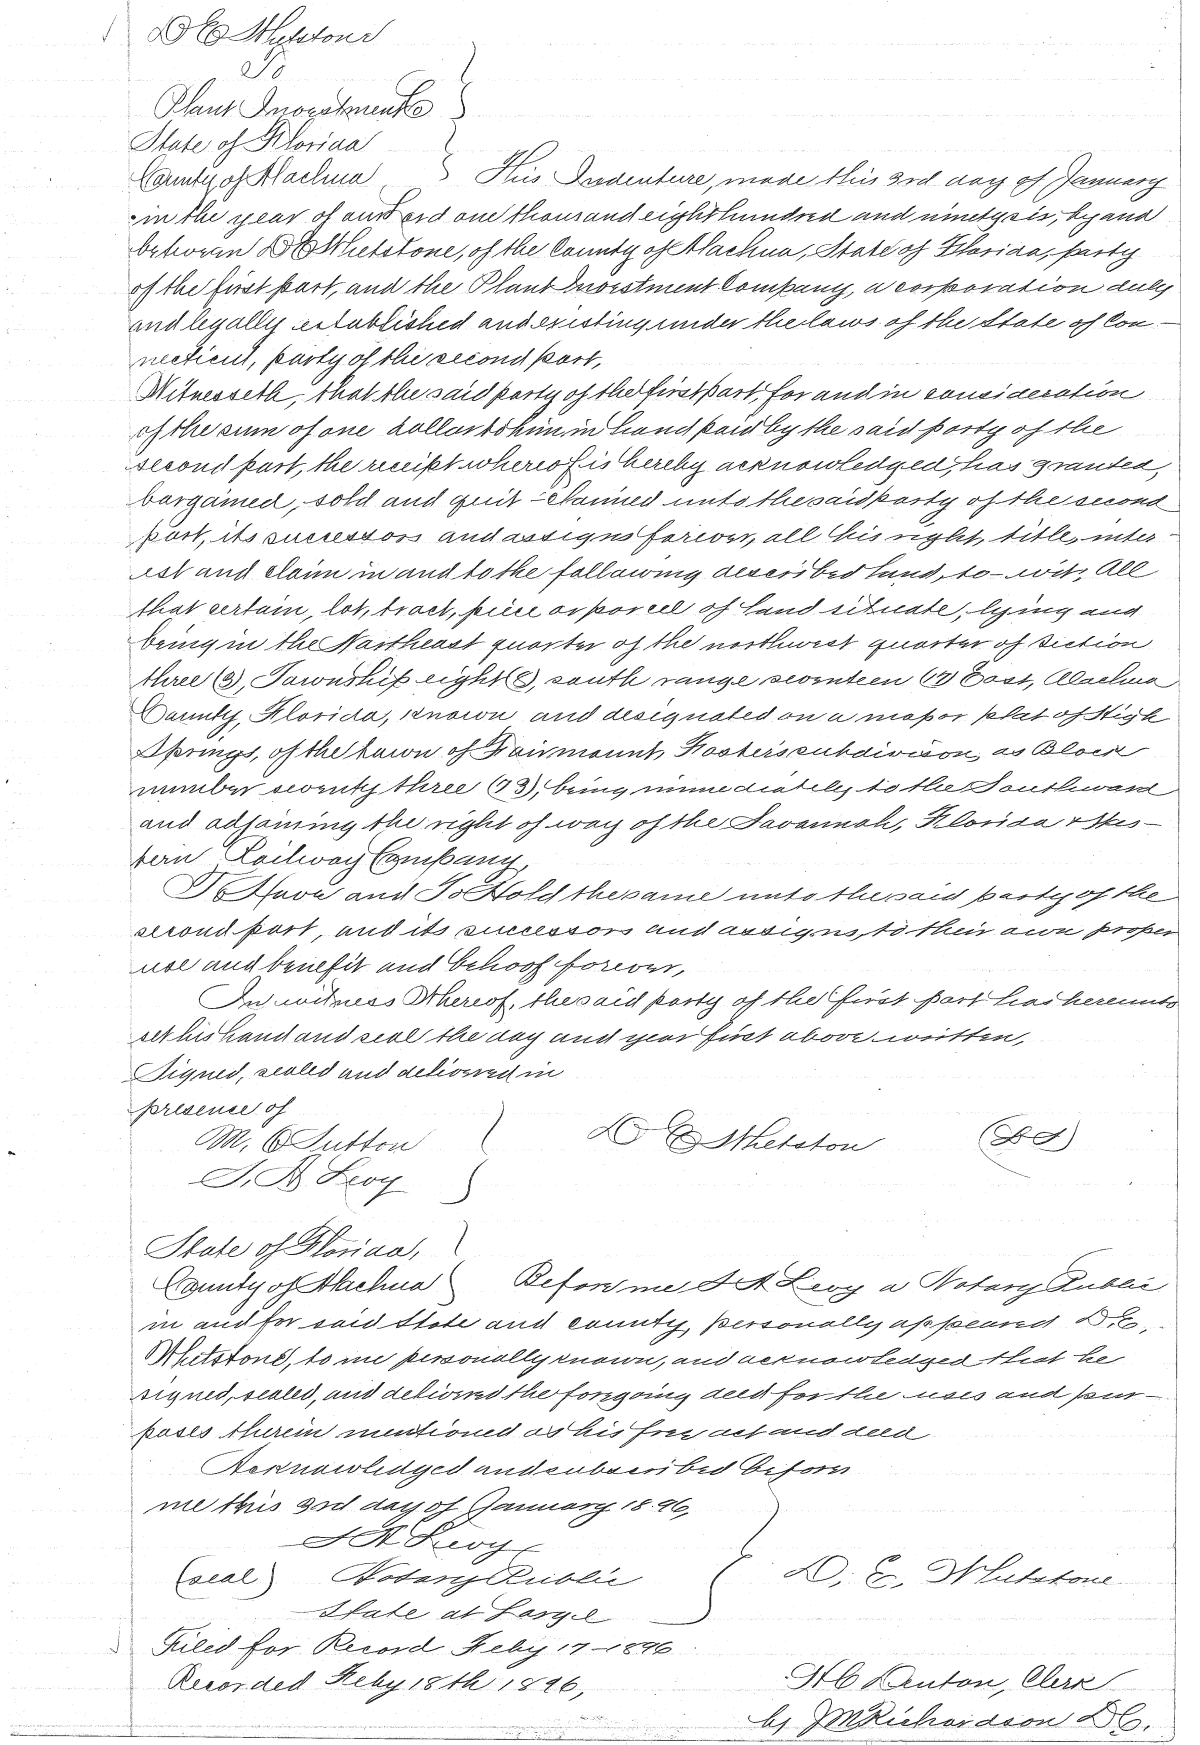 D E Whetstone
To
Plant Investment Co
State of Florida
County of Alachua This Indenture, made this 3rd day of January
in the year of our Lord one thousand eight hundred and ninety six, by and
between D E Whetstone, of the County of Alachua, State of Florida, party
of the first part, and the Plant Investment Company, a corporation duly
and legally established and existing under the laws of the State of Con-
necticut, party of the second part,
Witnesseth, that the said party of the first part, for and in consideration
of the sum of one dollar to him in hand paid by the said party of the
second part, the receipt whereof is hereby acknowledged, has granted,
bargained, sold and quit-claimed unto the said party of the second
part, its successors and assigns forever, all his right, title, inter-
est and claim in and to the following described land, to-wit, All
that certain, lot, tract, piece or parcel of land situate, lying and
being in the Northeast quarter of the northwest quarter of Section
three (3), Township eight (8), south range seventeen (17) East, Alachua
County, Florida, known and designated on a map or plat of High
Springs, of the town of Fairmount, Foster's subdivison, as Block
number seventy three (73), being immediately to the Southward
and adjoining the right of way of the Savannah, Florida & Wes-
tern Railway Company,
To Have and To Hold the same unto the said party of the
second part, and its successors and assigns, to their own proper
use and benefit and behoof forever,
In witness Whereof, the said party of the first part has hereunto
set his hand and seal the day and year first above written,
Signed, sealed and delivered in
presence of
M. C Sutton D E Whetston (LS)
J. A Levy
State of Florida,
County of Alachua Before me J A Levy a Notary Public
in and for said State and county, personally appeared D. E.
Whetstone, to me personally known, and acknowledged that he
signed, sealed, and delivered the foregoing deed for the uses and pur-
poses therein mentioned as his free act and deed
Acknowledged and subscribed before
me this 3rd day of January 1896,
J A Levy
(seal) Notary Public D. E. Whetstone
State at Large
Filed for Record Feby 17-1896
Recorded Feby 18th 1896, H C Denton, Clerk
by J M Richardson D C.